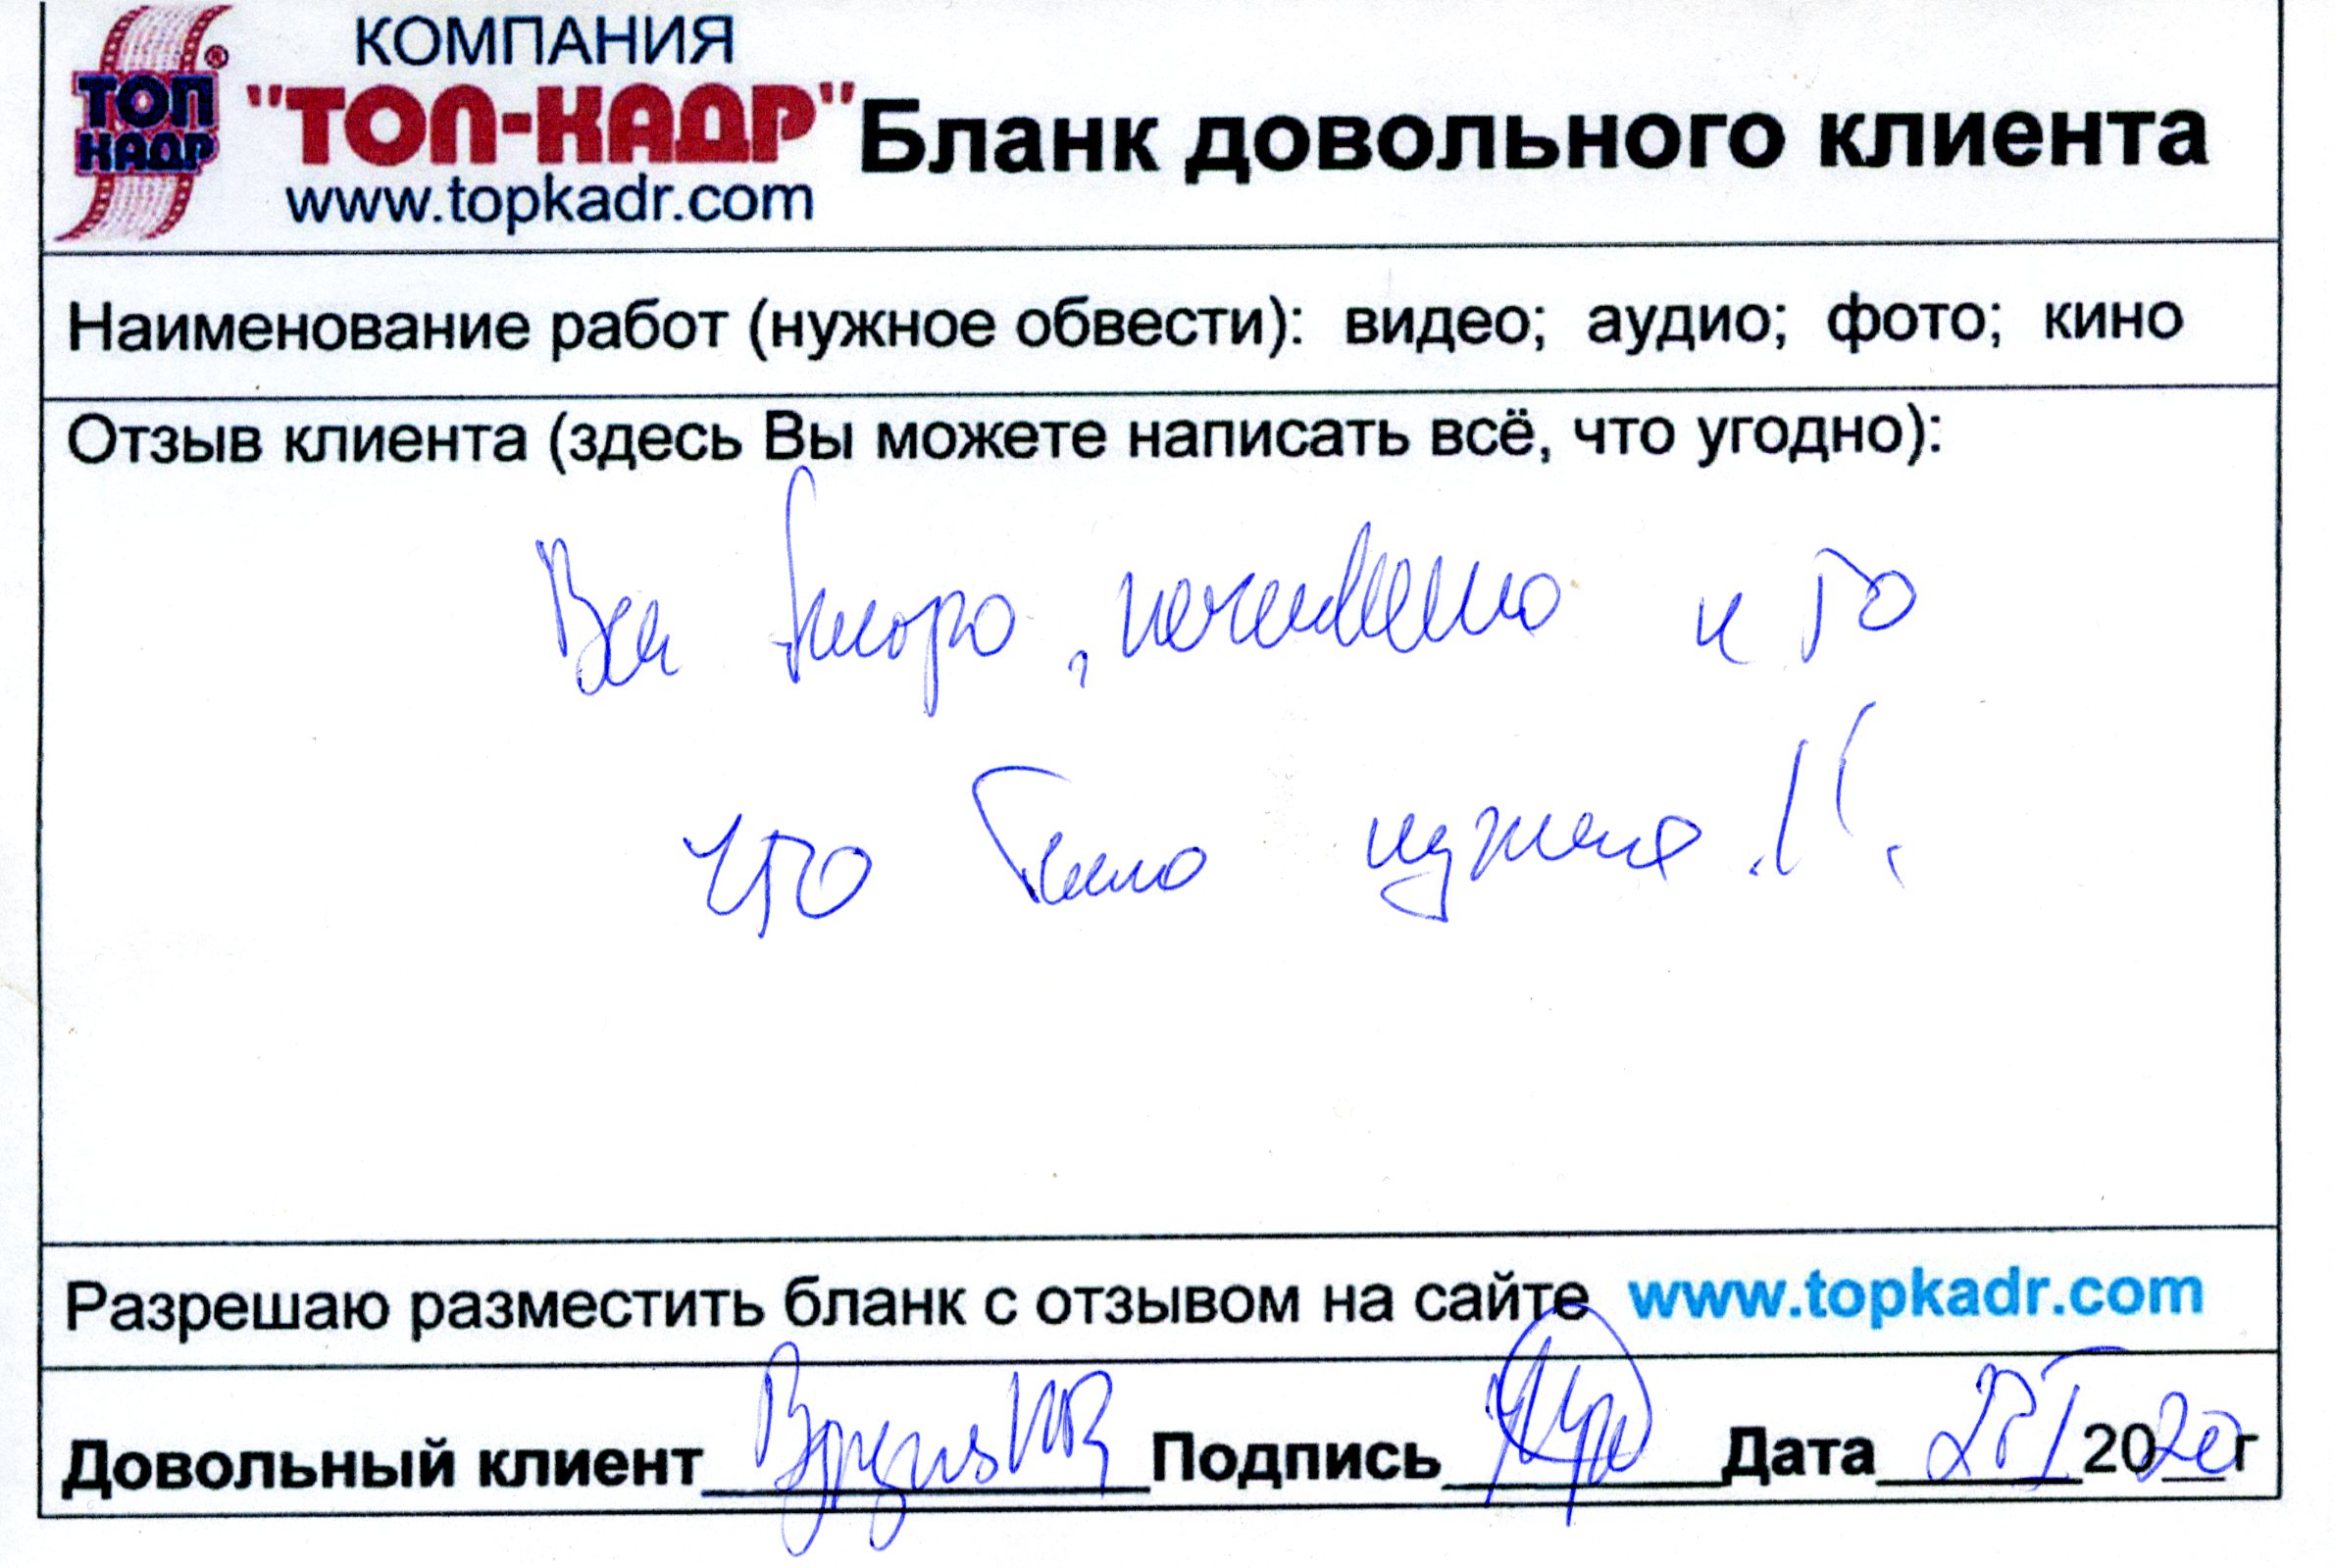 КОМПАНИЯ
ТОП КАДР ®
"ТОП-КАДР" Бланк довольного клиента
www.topkadr.com
Наименование работ (нужное обвести): видео; аудио; фото; кино
Отзыв клиента (здесь Вы можете написать всё, что угодно):
Все скоро, и то
что было нужно!!
Разрешаю разместить бланк с отзывом на сайте www.topkadr.com
Довольный клиент Подпись Дата 2020г